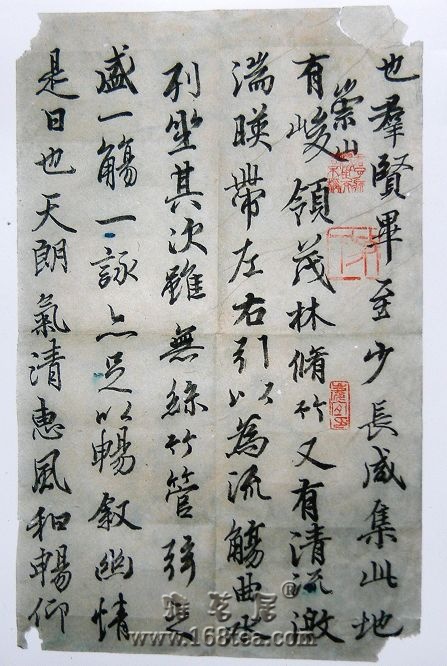 也羣賢畢至少長咸集此地
崇山
有峻領茂林脩竹又有清流激
湍暎帶左右引以為流觴曲水
列坐其次雖無絲竹管弦之
盛一觴一詠亦足以暢叙幽情
是日也天朗氣清惠風和暢仰
®
www.168tea.com